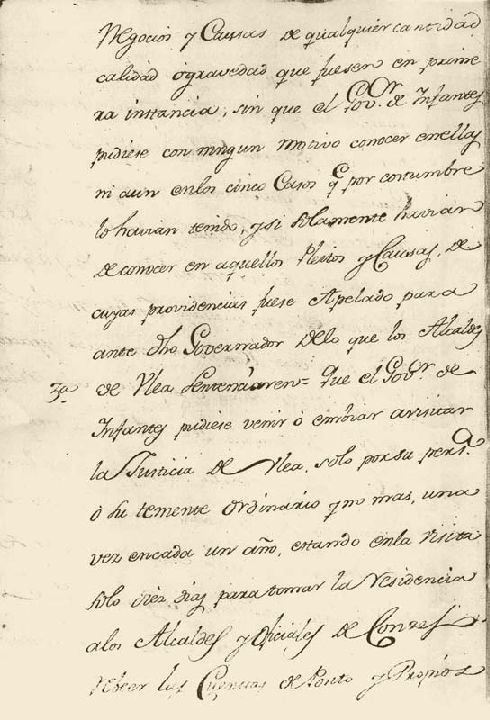 Negocios y Causas de qualquier cantidad
calidad o gravedad que fuesen en prime
ra instancia, sin que el Govor. de Infantes
pudiese con ningun motivo conocer en ellas
ni aun en los cinco Casos q.e por costumbre
lo havian tenido, y si solamente havian
de conocer en aquellos Pleitos y Causas, de
cuyas providencias fuese Apelado para
ante dho Governador Delo que los Alcaldes
3a. de Vlea Sentenciaren= Que el Govor. de
Infantes pudiese venir o embiar a visitar
la Justicia de Vlea, solo por su persa.
o su teniente ordinario y no mas, una
vez en cada un año, estando en la visita
solo diez dias para tomar la residencia
a los Alcaldes y oficiales de Conzejo
las Cuentas de Posito y Propios